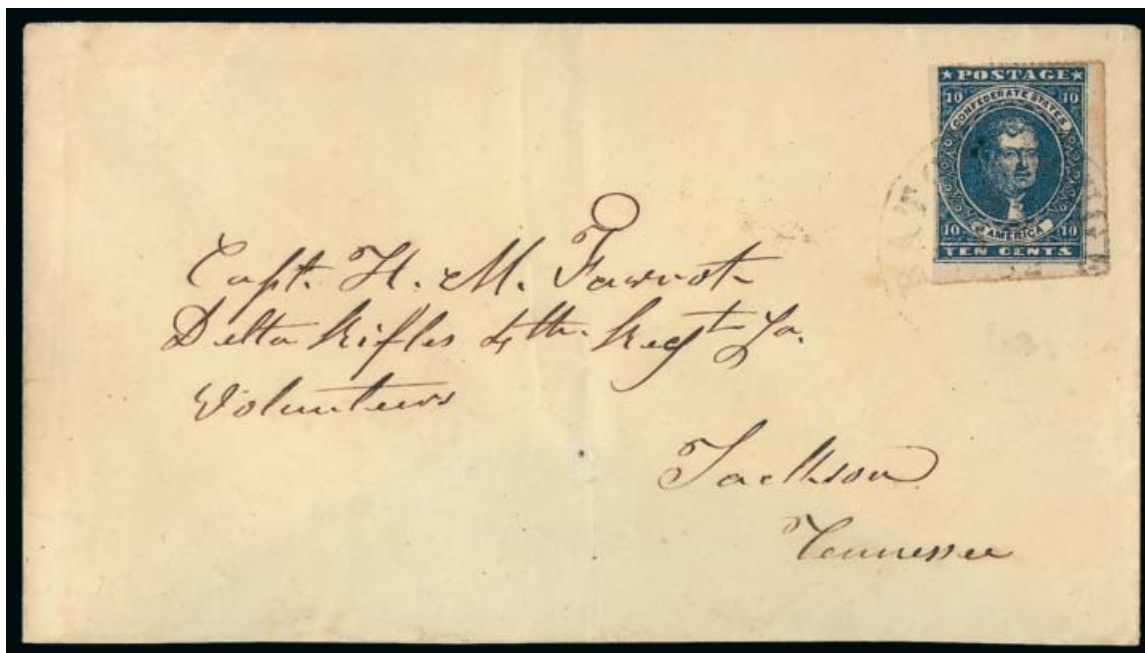 ★ POSTAGE ★
10 10
CONFEDERATE STATES
OF AMERICA
10 10
TEN CENTS
Capt. H. M. Favrot
Delta Rifles 4th. Regt La.
Volunteers
Jackson
Tennessee